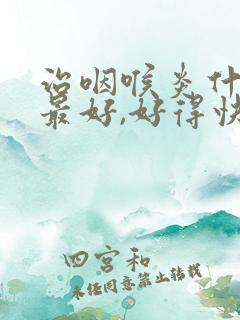 治咽喉炎什
最好,好得快
四宫和
未经同意禁止转载